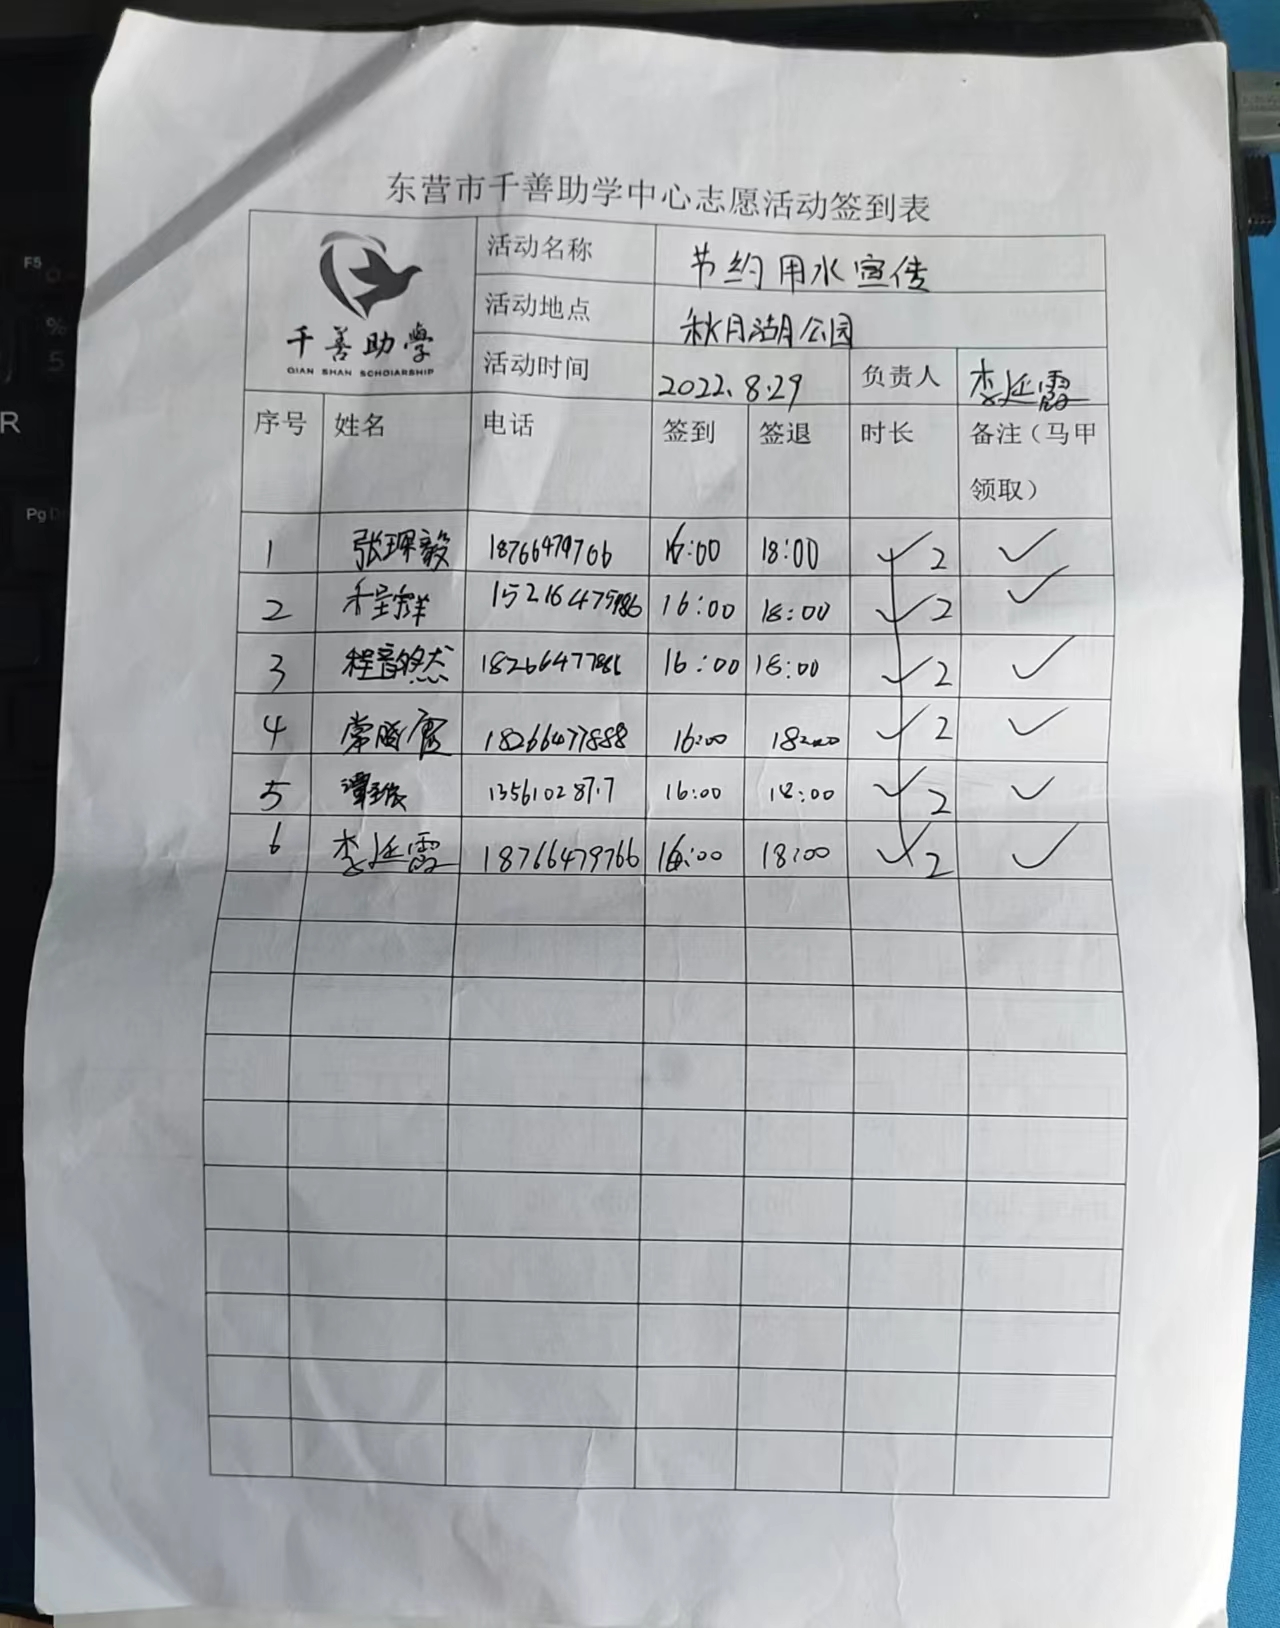 东营市千善助学中心志愿活动签到表
千善助学
QIAN SHAN SCHOIARSHIP
活动名称 节约用水宣传
活动地点 秋月湖公园
活动时间 2022.8.29 负责人 李延霞
序号 姓名 电话 签到 签退 时长 备注（马甲领取）
1 张琛毅 18766479766 16:00 18:00 ✓2 ✓
2 程群 16:00 18:00 ✓2 ✓
3 程韵然 16:00 18:00 ✓2 ✓
4 18266477888 16:00 18:00 ✓2 ✓
5 16:00 18:00 ✓2 ✓
6 李延霞 18766479766 16:00 18:00 ✓2 ✓
F5
%
5
R
Pg